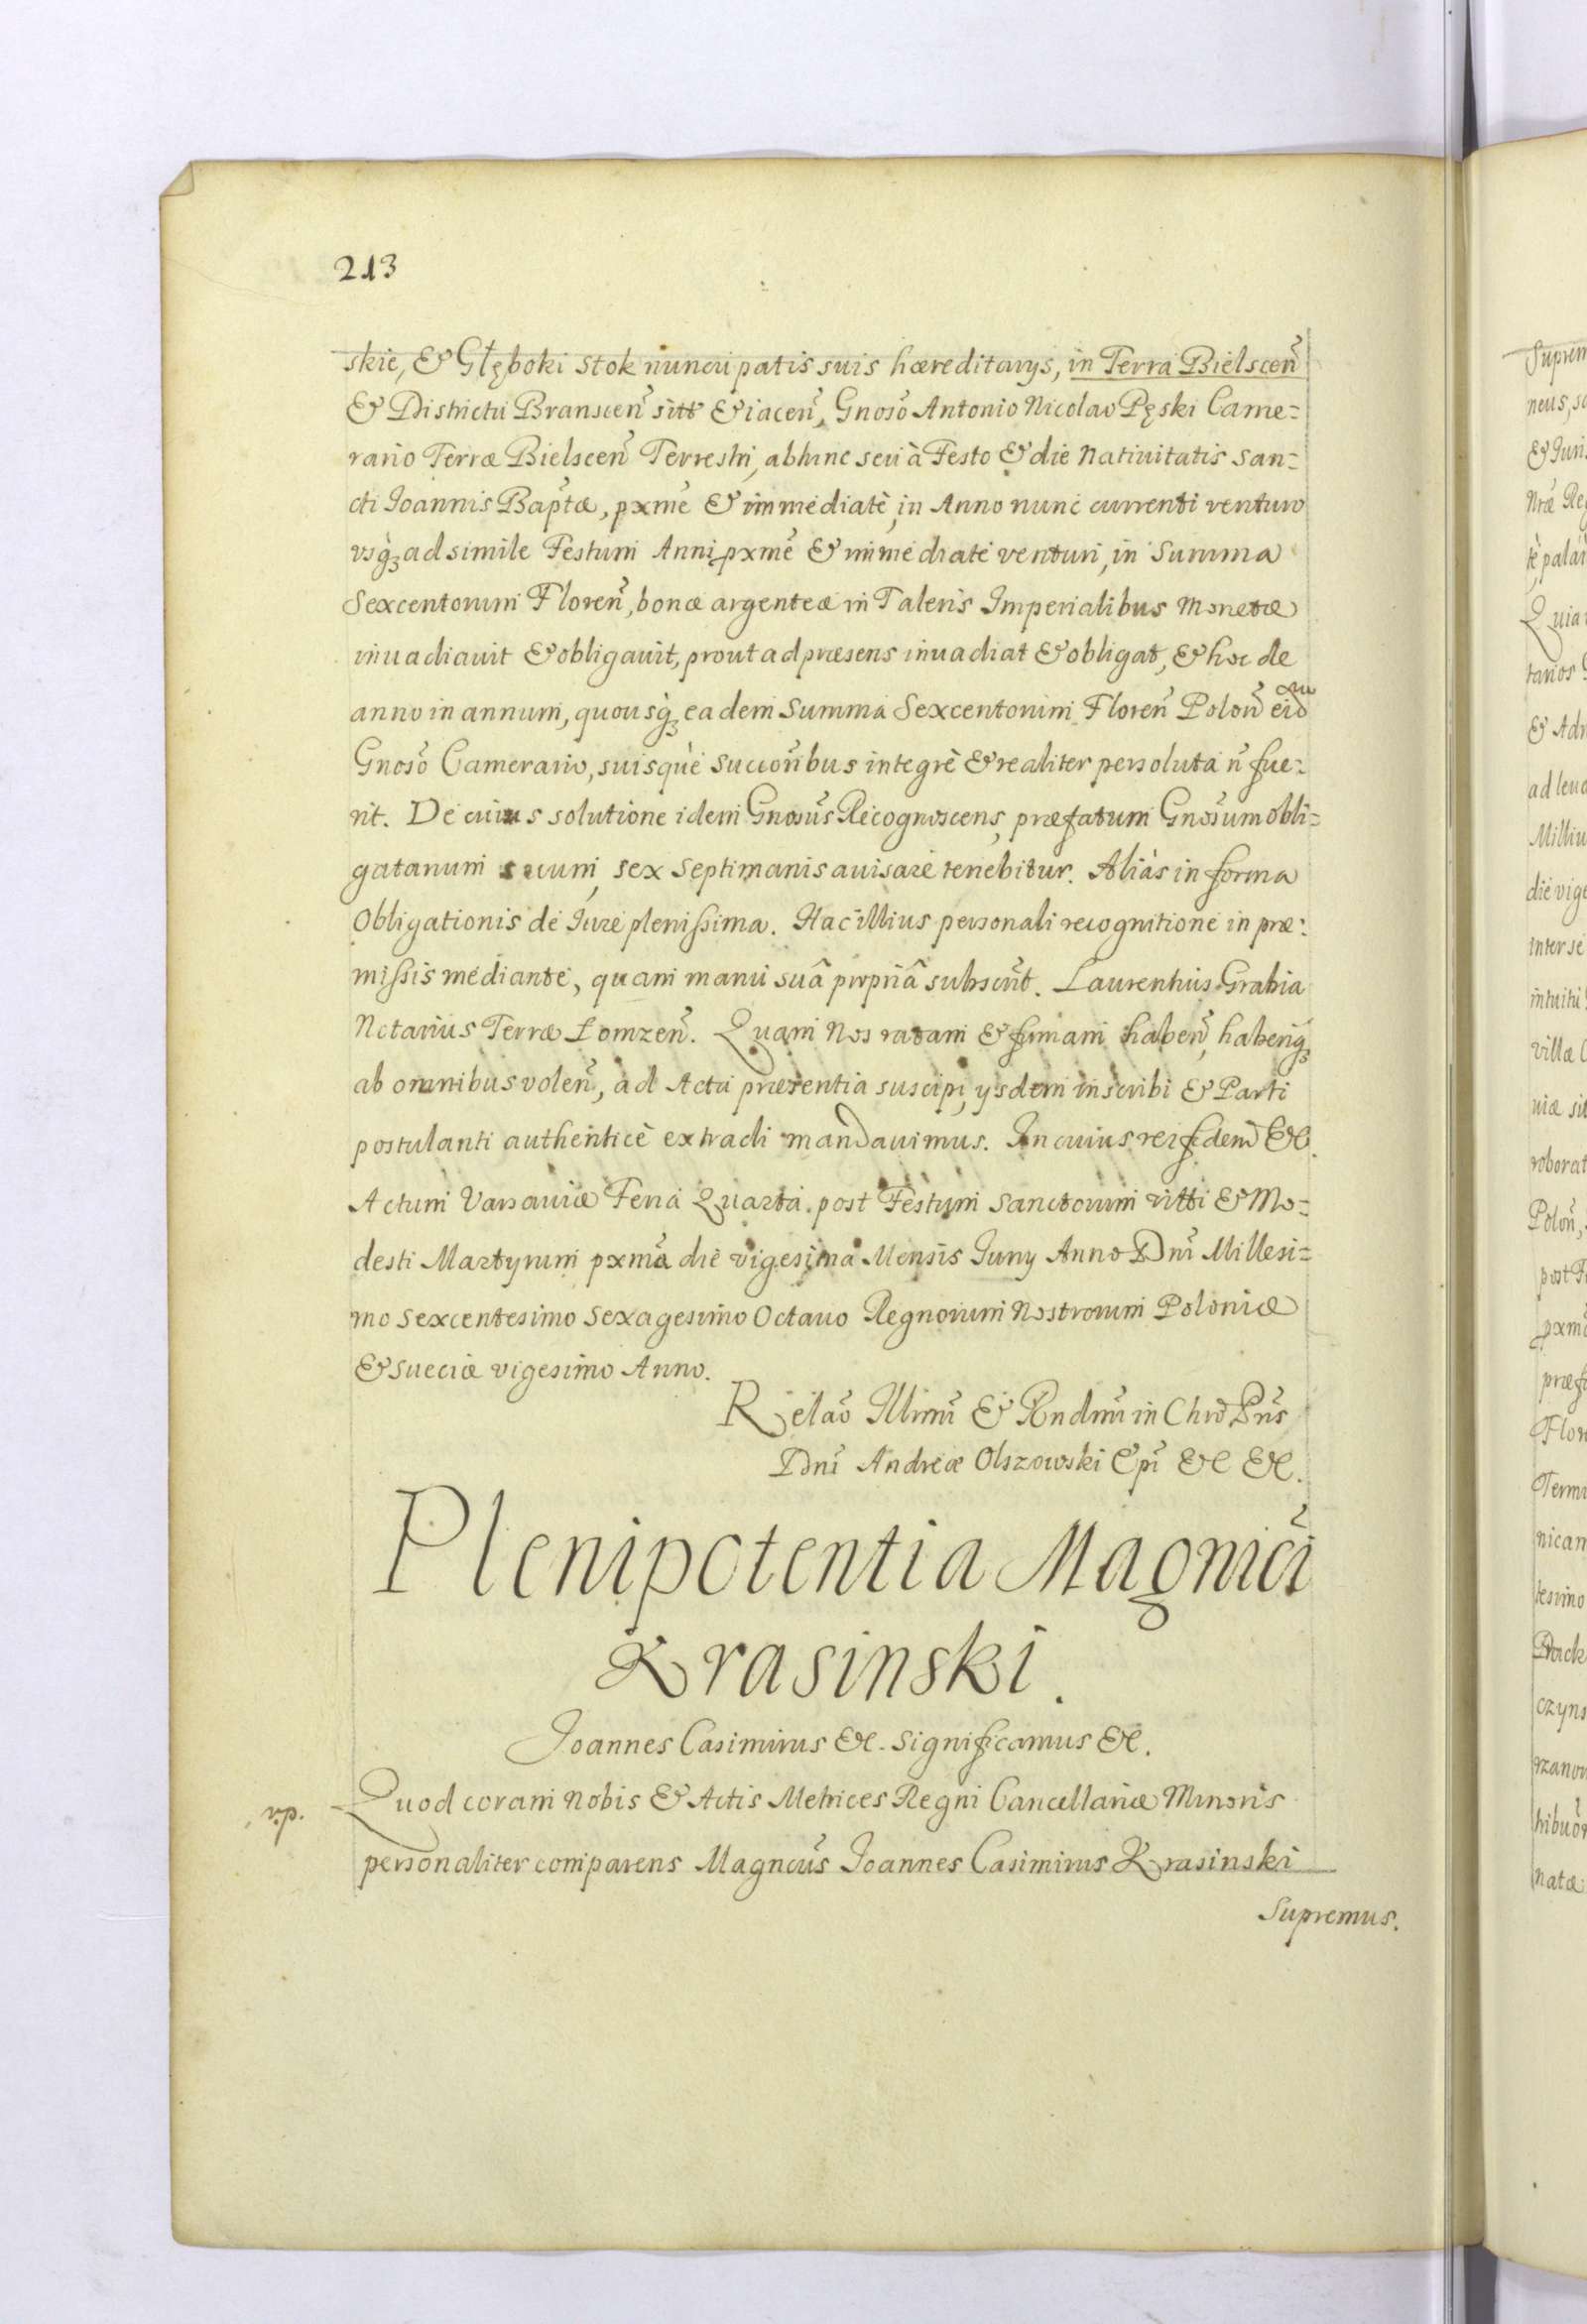 213
skie, & Głęboki stok nuncupatis suis hæreditarys, in Terra Bielscen̄
& Districtu Branscen̄ sitt & iacen̄, Gnoso Antonio Nicolao Pęski Came=
rario Terræ Bielscen̄ Terrestri, abhinc seu à Festo & die Nativitatis San=
cti Joannis Baptæ, pxme & immediatè, in Anno nunc currenti venturo
vsq₃ ad simile Festum Anni pxmē & immediatè venturi, in Summa
Sexcentorum Floren̄, bonæ argenteæ in Taleris Imperialibus Monetæ
inuadiauit & obligauit, prout ad præsens inuadiat & obligat, & hoc de
anno in annum, quousq₃ eadem Summa Sexcentorum Floren̄ Polon̄ eid
Gnoso Camerario, suisquè Succoribus integrè & realiter persoluta n̄ fue=
rit. De cuius solutione idem Gnosus Recognoscens, præfatum Gnosum obli=
gatarium suum, sex septimanis auisare tenebitur. Aliàs in forma
Obligationis de Jure plenissima. Hac illius personali recognitione in præ=
missis mediante, quam manu suâ propriâ subscrit. Laurentius Grabia
Notarius Terræ Lomzen̄. Quam Nos ratam & firmam haben̄, haberiq₃
ab omnibus volen̄, ad Acta præsentia suscipi, ysdem inscribi & Parti
postulanti authenticè extradi mandauimus. In cuius rei fidem &c.
Actum Varsauiæ Feria Quarta post Festum Sanctorum Vitti & Mo=
desti Martyrum pxma die vigesima Mensis Juny Anno Dni Millesi=
mo Sexcentesimo Sexagesimo Octauo Regnorum Nostrorum Poloniæ
& Sueciæ vigesimo Anno.
Relao Illmi & Rndmi in Chro Pris
Dni Andreæ Olszowski Epi &c &c.
Plenipotentia Magnici
Krasinski.
Joannes Casimirus &c. Significamus &c.
v.p.
Quod coram Nobis & Actis Metrices Regni Cancellariæ Minoris
personaliter comparens Magncus Joannes Casimirus Krasinski
Supremus.